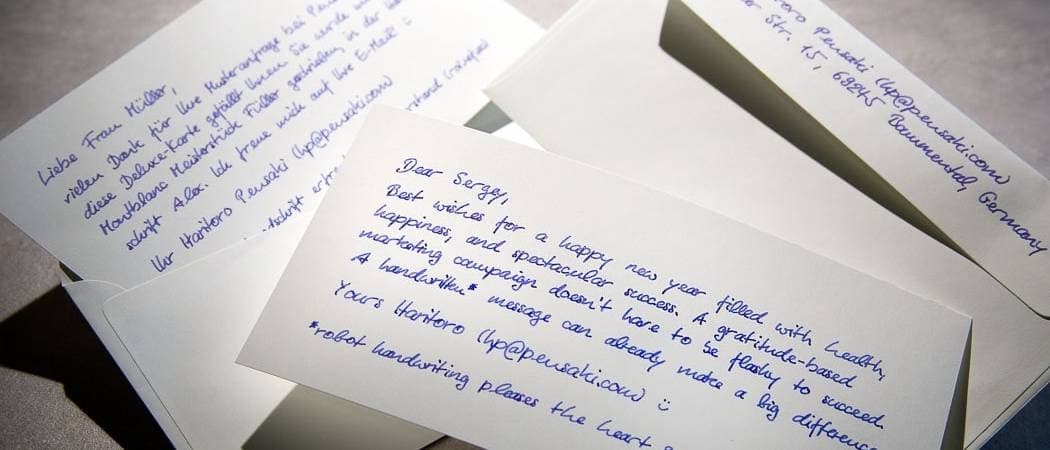 Liebe Frau Müller,
vielen Dank für Ihre Musteranfrage bei
diese Deluxe-Karte gefällt Ihnen. Sie wurde
Montblanc Meisterstück Füller geschrieben, in der
schrift Alex. Ich freue mich auf Ihre E-Mail
Ihr Haritoro Pensaki (hp@pensaki.com)
Pensaki (hp@pensaki.com)
Str. 15, 69245
Bammental, Germany
Dear Sergey,
Best wishes for a happy new year filled with health,
happiness, and spectacular success. A gratitude-based
marketing campaign doesn't have to be flashy to succeed.
A handwritten* message can already make a big difference
Yours Haritoro (hp@pensaki.com) :)
*robot handwriting pleases the heart